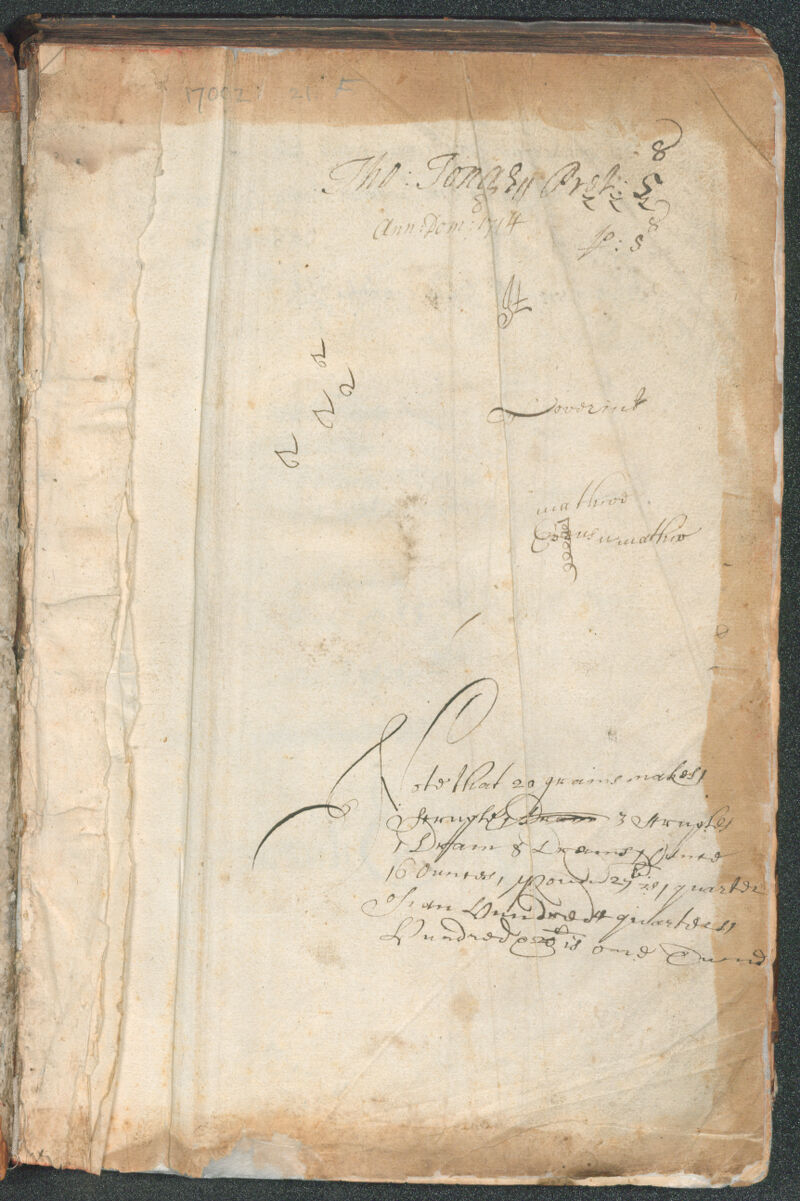 17002 21 F
8
Tho: Tonge Pret:
Ann: Dom: 1714
p: s
It
2
2
2
2
Noverint
mathew
mathew
8
Note that 20 grains makes 1
Scruple Dram 3 Scruples
1 Dram 8 Drams 1 Ounce
16 Ounces 1 Pound 27 is 1 quarter
of an Hundred 4 quarters 1
Hundred 20 is one Tunn